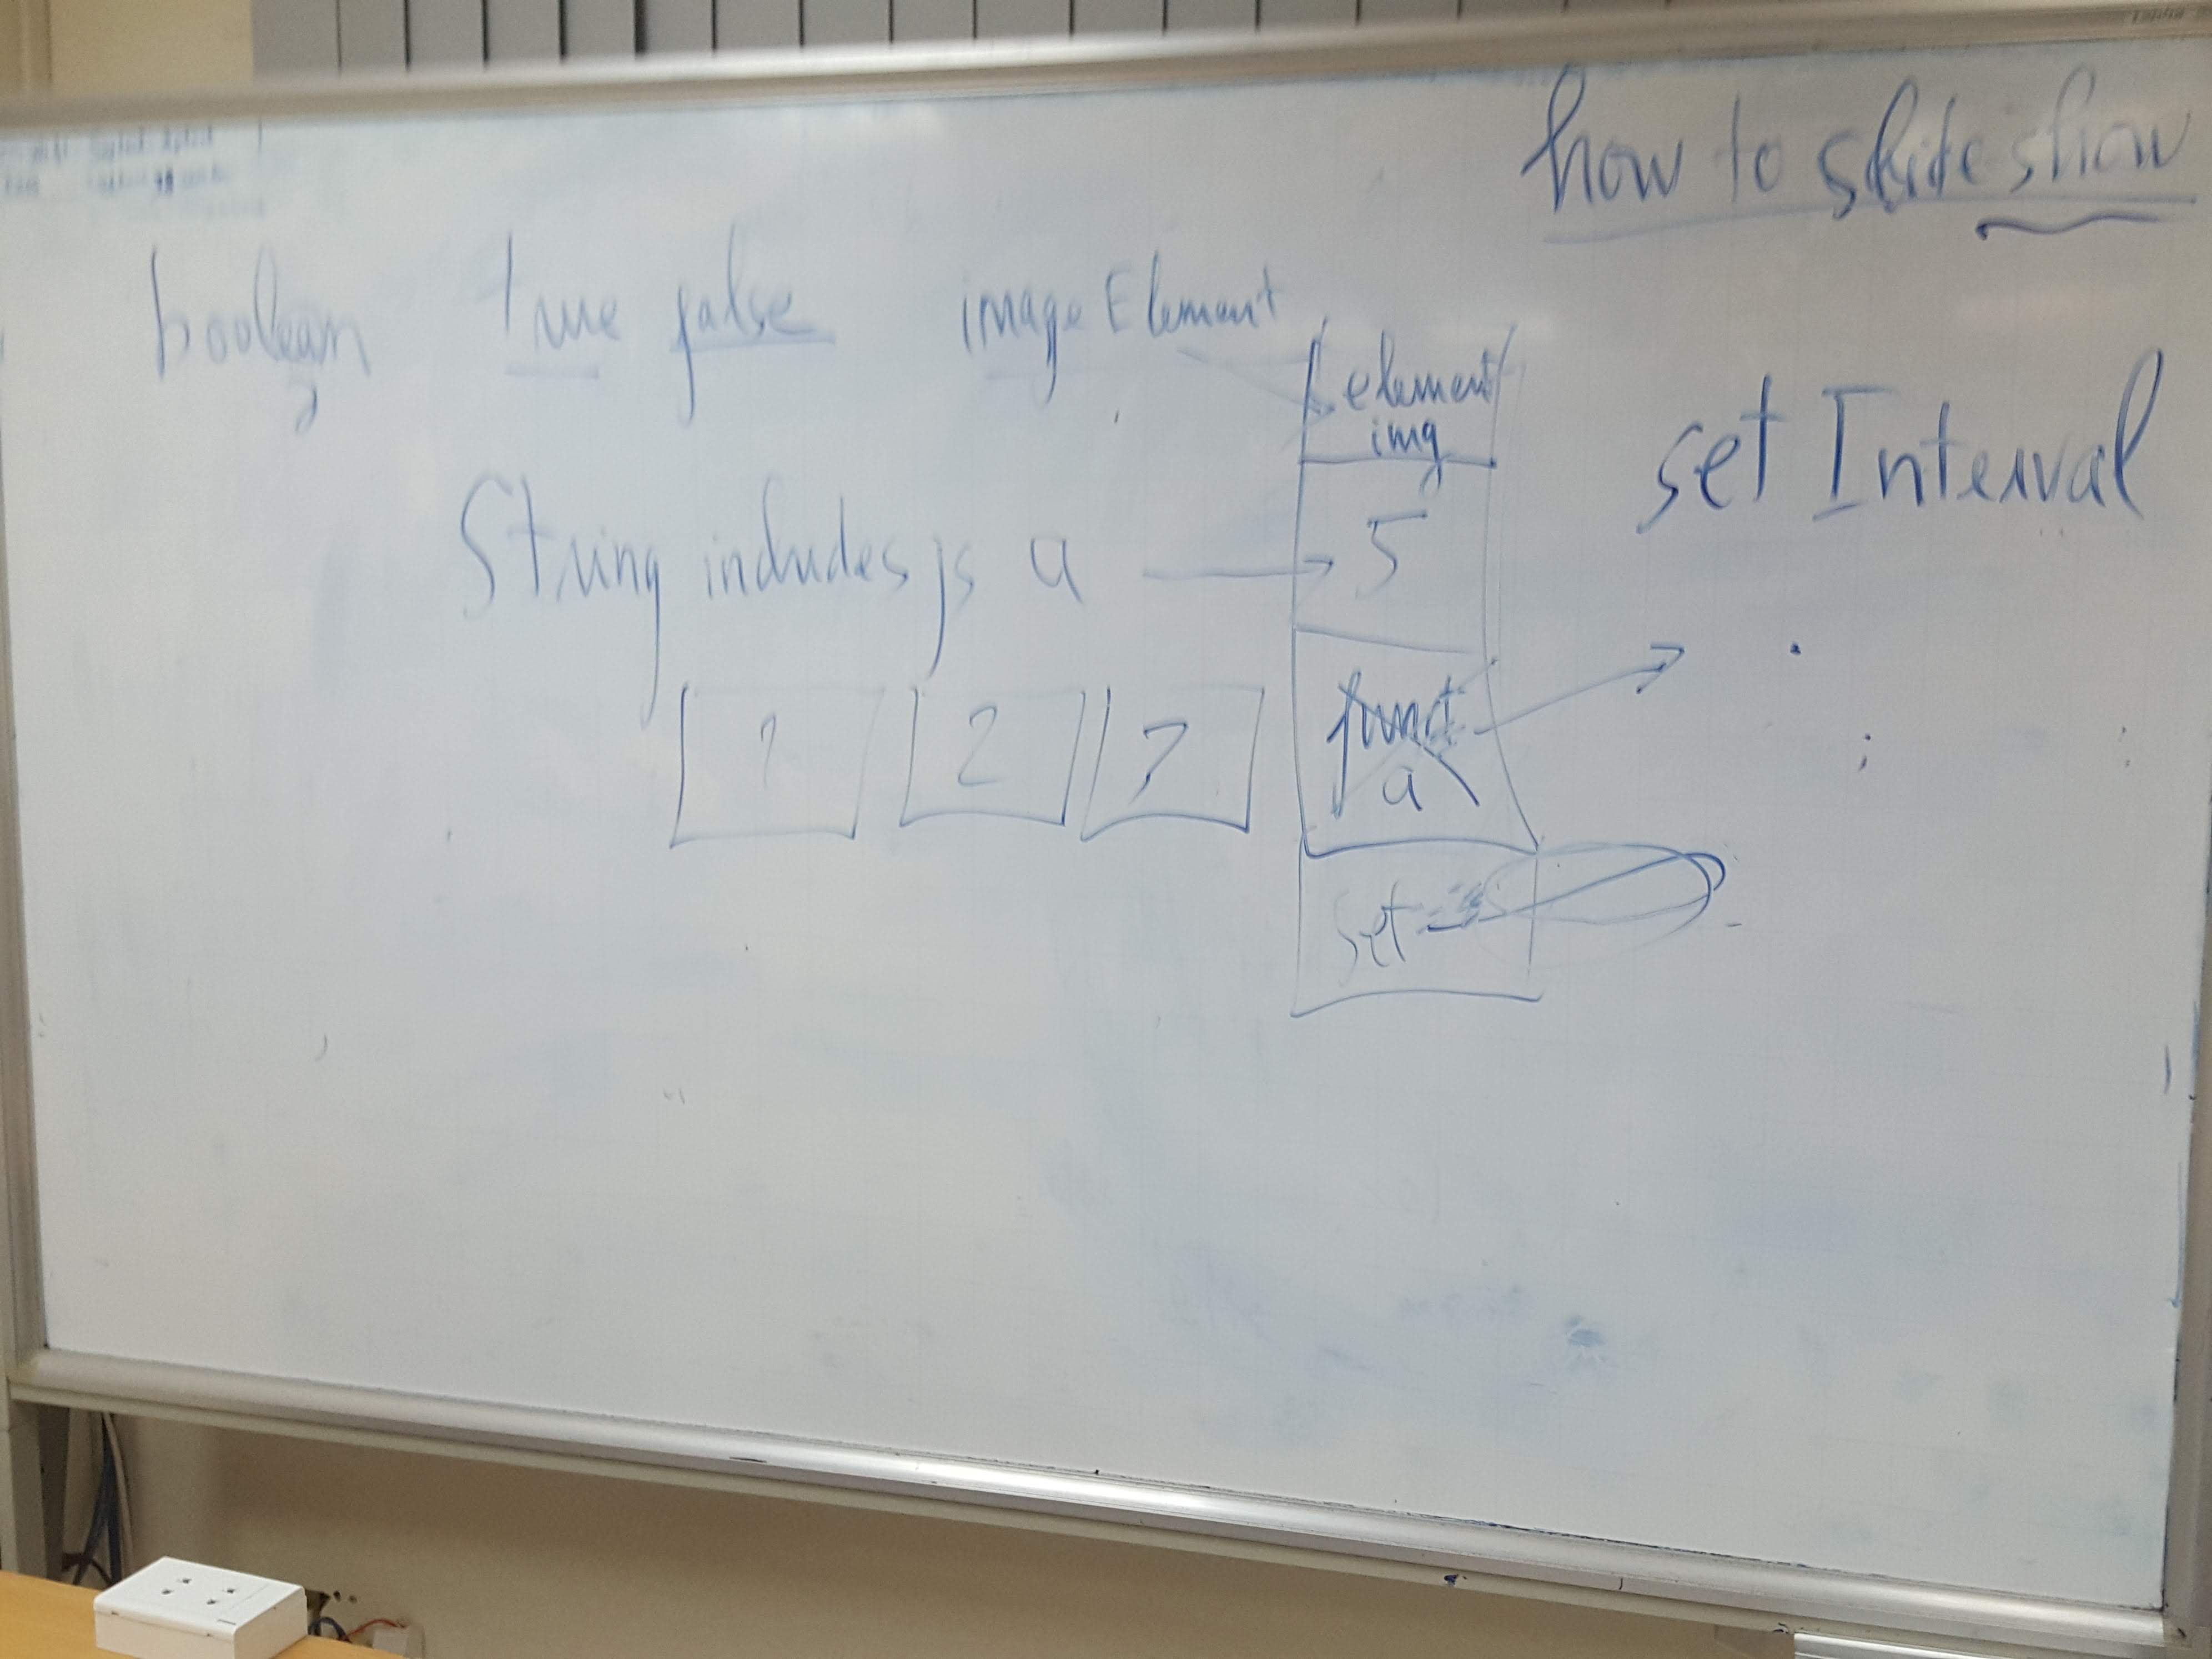 how to slide show
boolean true false imageElement
element
img
set Interval
String includes js a
5
1 2
funct
a
set